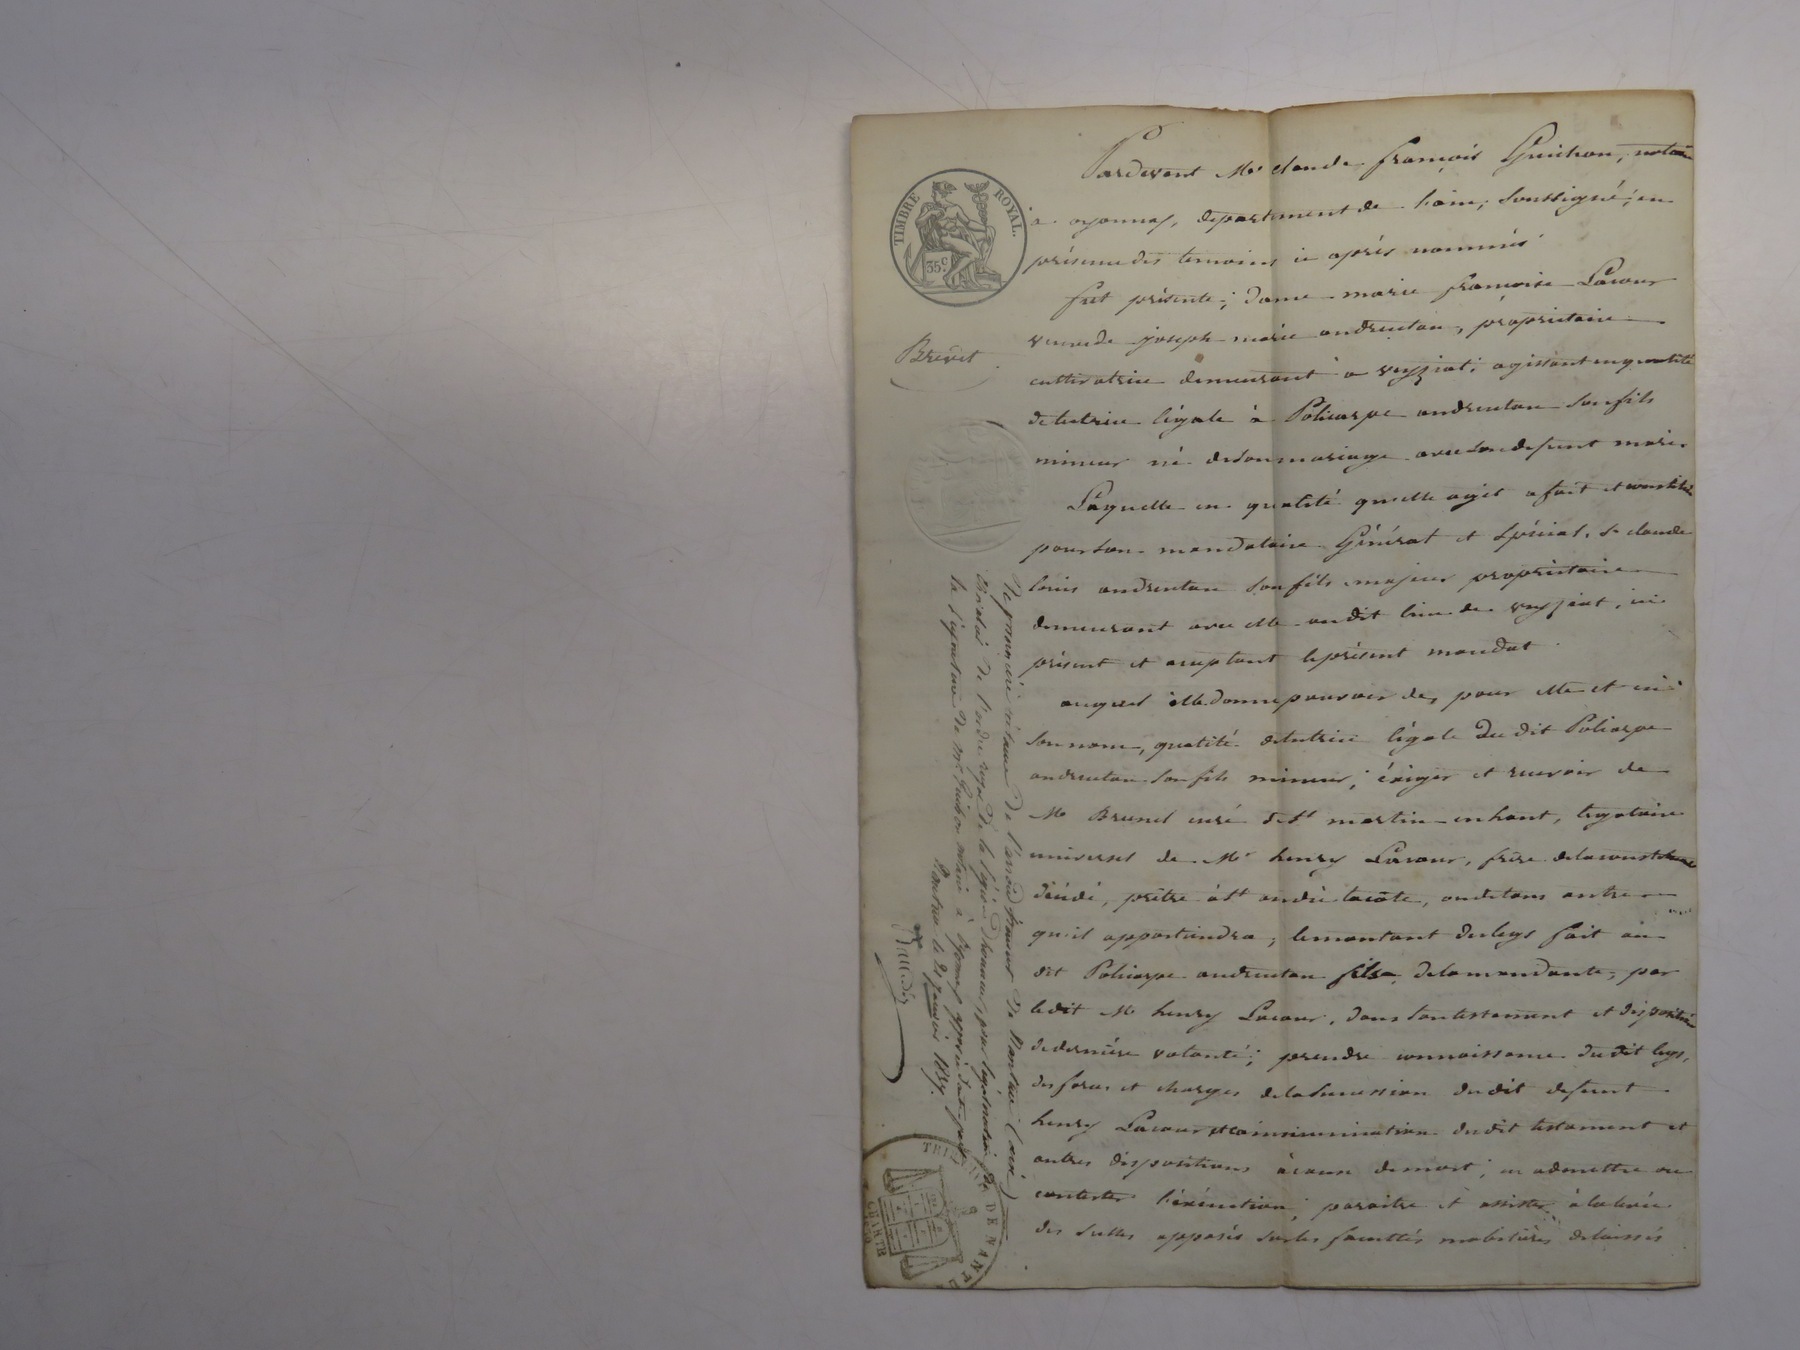 Pardevant Me claude françois Guichon, notaire
à oyonnax, departement de l'ain, soussigné; en
présence des temoins ci après nommés
fut présente; dame marie françoise Lacour
veuve de joseph marie andruetan, propriétaire
cultivatrice demeurant à veyziat; agissant en qualité
de tutrice légale à Policarpe andruetan son fils
mineur né de son mariage avec son defunt mari.
Laquelle en qualité qu'elle agit a fait et constitué
pour son mandataire Général et spécial, sr claude
louis andruetan son fils majeur propriétaire
demeurant avec elle au dit lieu de veyziat, ici
présent et acceptant le présent mandat.
auquel elle donne pouvoir de, pour elle et en
son nom, qualité de tutrice légale du dit Policarpe
andruetan son fils mineur; éxiger et recevoir de
Mr Brunel curé de st martin en haut, légataire
universel de Mr henry Lacour, frère de la constituante
décédé, prêtre à st andré la côte, ou de tous autre
qu'il appartiendra, le montant du legs fait au
dit Policarpe andruetan fils de la mandante, par
le dit Mr henry Lacour, dans son testament et disposition
de dernière volonté; prendre connaissance du dit legs,
des forces et charges de la succession du dit defunt
henry Lacour du dit testament et
autres dispositions à cause de mort; en admettre ou
contester l'éxécution; paraitre et assister à la levée
des scellés apposés sur les facultés mobilières delaissés
TIMBRE ROYAL.
35c
Brevet
de l'arrondissement de Nantua (ain)
de l'ordre royal de la légion d'honneur, pour légalisation de
la signature de Mr Guichon notaire à Oyonnax apposée d'autre part
Nantua le 21 janvier 1837.
TRIBUNAL DE NANTU
CHARTE
1830